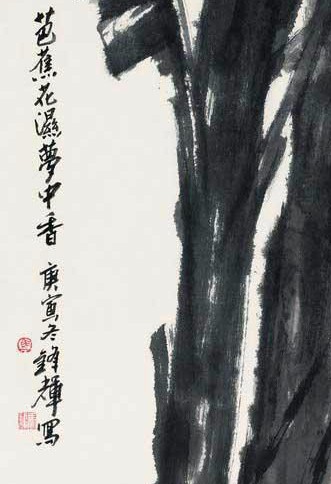 芭蕉花濕夢中香 庚寅冬鋒輝寫